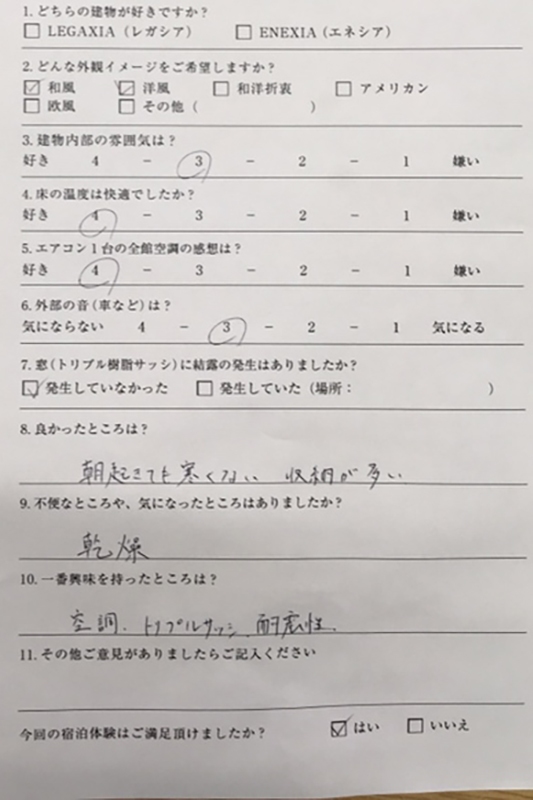 1. どちらの建物が好きですか?
□ LEGAXIA (レガシア) □ ENEXIA (エネシア)
2. どんな外観イメージをご希望しますか?
☑ 和風 ☑ 洋風 □ 和洋折衷 □ アメリカン
□ 欧風 □ その他 ( )
3. 建物内部の雰囲気は?
好き 4 − 3 − 2 − 1 嫌い
4. 床の温度は快適でしたか?
好き 4 − 3 − 2 − 1 嫌い
5. エアコン1台の全館空調の感想は?
好き 4 − 3 − 2 − 1 嫌い
6. 外部の音(車など)は?
気にならない 4 − 3 − 2 − 1 気になる
7. 窓(トリプル樹脂サッシ)に結露の発生はありましたか?
☑ 発生していなかった □ 発生していた (場所: )
8. 良かったところは?
朝起きても寒くない 収納が多い
9. 不便なところや、気になったところはありましたか?
乾燥
10. 一番興味を持ったところは?
空調、トリプルサッシ、耐震性。
11. その他ご意見がありましたらご記入ください
今回の宿泊体験はご満足頂けましたか? ☑ はい □ いいえ